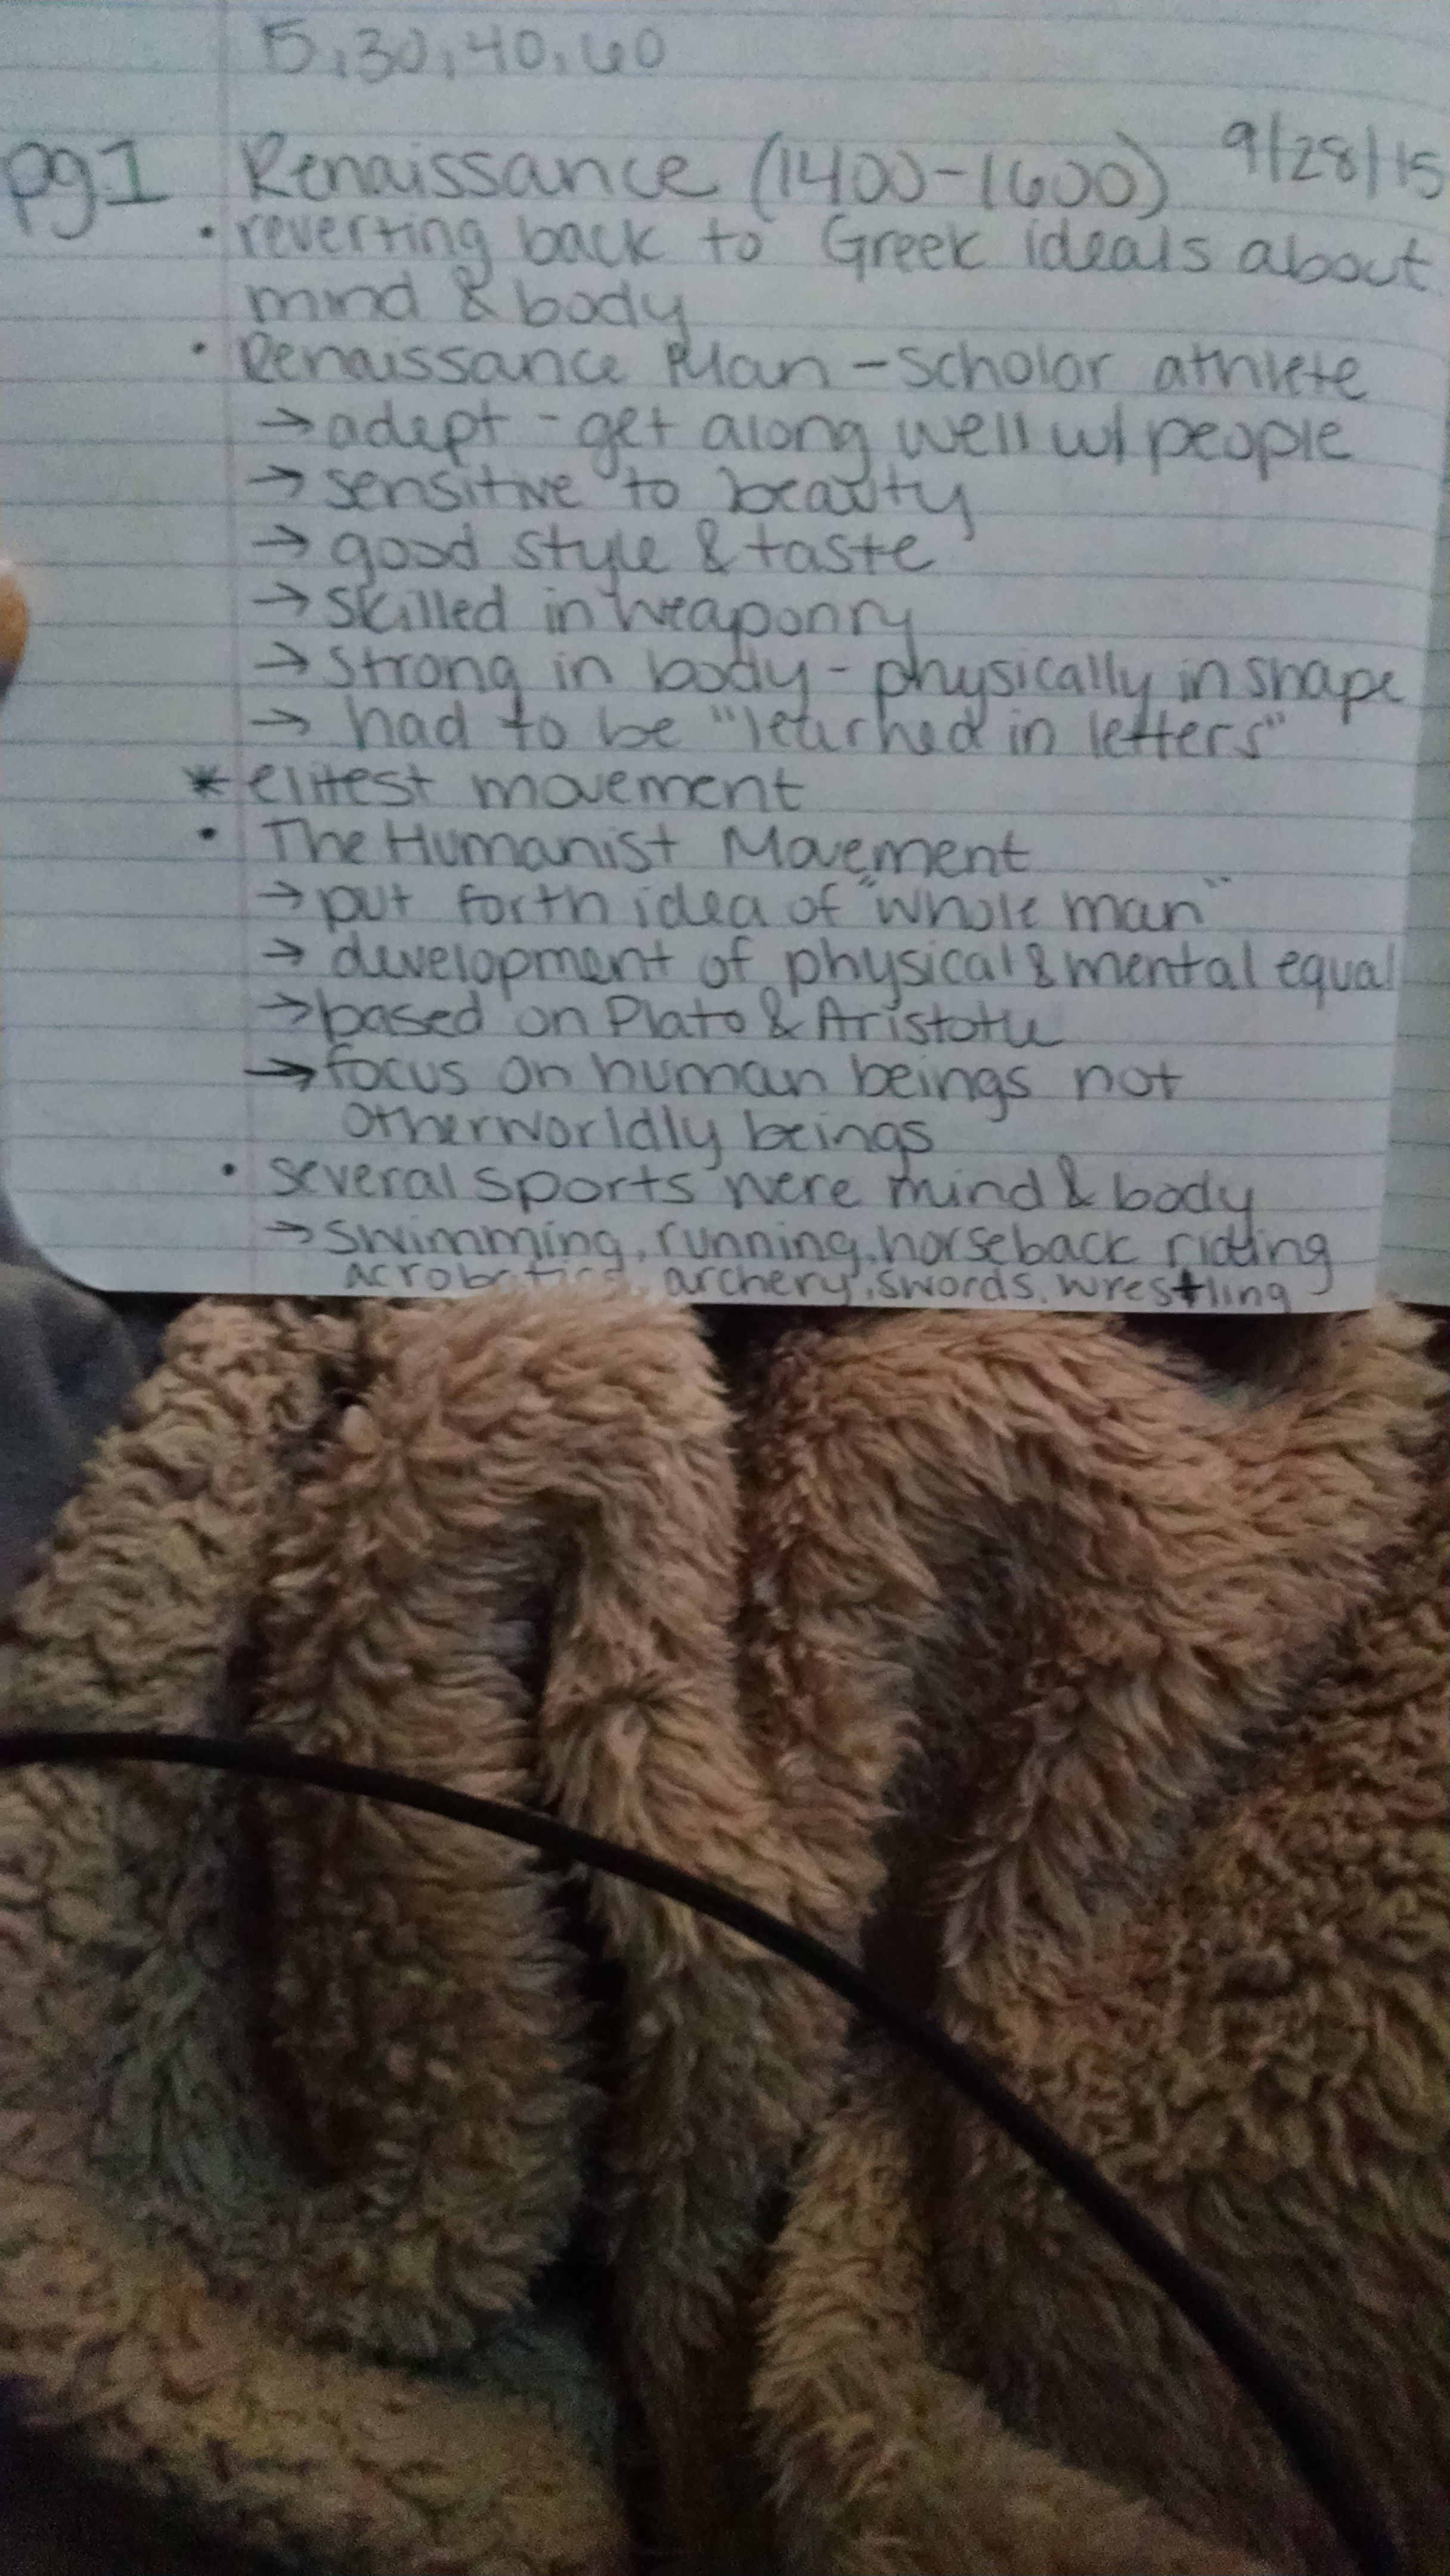 5, 30, 40, 60
pg 1 Renaissance (1400-1600) 9/28/15
• reverting back to Greek ideals about
mind & body
• Renaissance Man - scholar athlete
→ adept - get along well w/ people
→ sensitive to beauty
→ good style & taste
→ skilled in weaponry
→ strong in body - physically in shape
→ had to be "learned in letters"
* elitest movement
• The Humanist Movement
→ put forth idea of "whole man"
→ development of physical & mental equal
→ based on Plato & Aristotle
→ focus on human beings not
otherworldly beings
• several sports were mind & body
→ swimming, running, horseback riding
acrobatics, archery, swords, wrestling